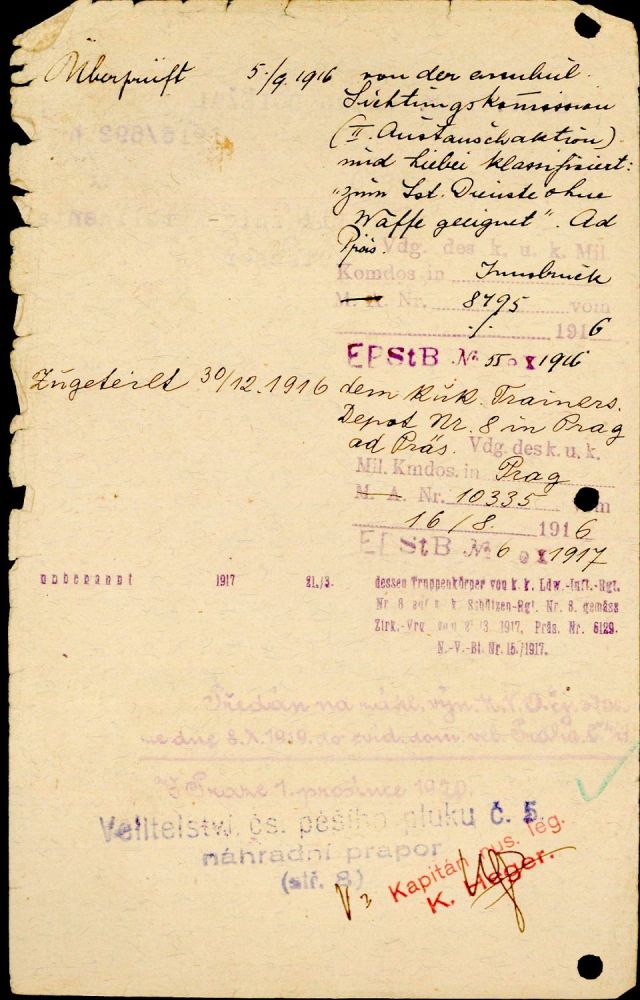 Überprüft 5./9. 1916 von der ambul.
Sichtungskommission
(II. Austauschaktion)
und hiebei klassifiziert:
"zum Lst. Dienste ohne
Waffe geeignet". Ad
Präs. Vdg. des k. u. k. Mil
Komdos in Innsbruck
M. A. Nr. 8795 vom
./. 1916
EPStB № 55 1916
Zugeteilt 30/12. 1916 dem k.u.k. Trainers.
Depot Nr. 8 in Prag
ad Präs. Vdg. des k. u. k.
Mil. Kmdos. in Prag
M. A. Nr. 10335 vom
16/8. 1916
EPStB № 6 1917
unbenannt 1917 21./3. dessen Truppenkörper von k. k. Ldw.-Inft.-Rgt.
Nr. 8 auf k. k. Schützen-Rgt. Nr. 8. gemäss
Zirk.-Vrg. vom 21/3. 1917. Präs. Nr. 6129.
N.-V.-Bl. Nr. 15./1917.
na výn. M. N. O. čj.
ze dne 8.X.1919. do evid. dom.
V Praze 1. prosince 1920.
Velitelství čs. pěšího pluku č. 5.
náhradní prapor
(stř. 8)
Kapitán rus. leg.
K. Heger.